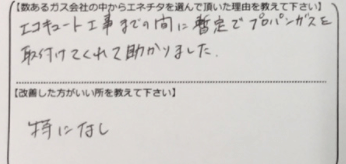 【数あるガス会社の中からエネチタを選んで頂いた理由を教えて下さい】
エコキュート工事までの間に暫定でプロパンガスを
取付けてくれて助かりました.
【改善した方がいい所を教えて下さい】
特になし